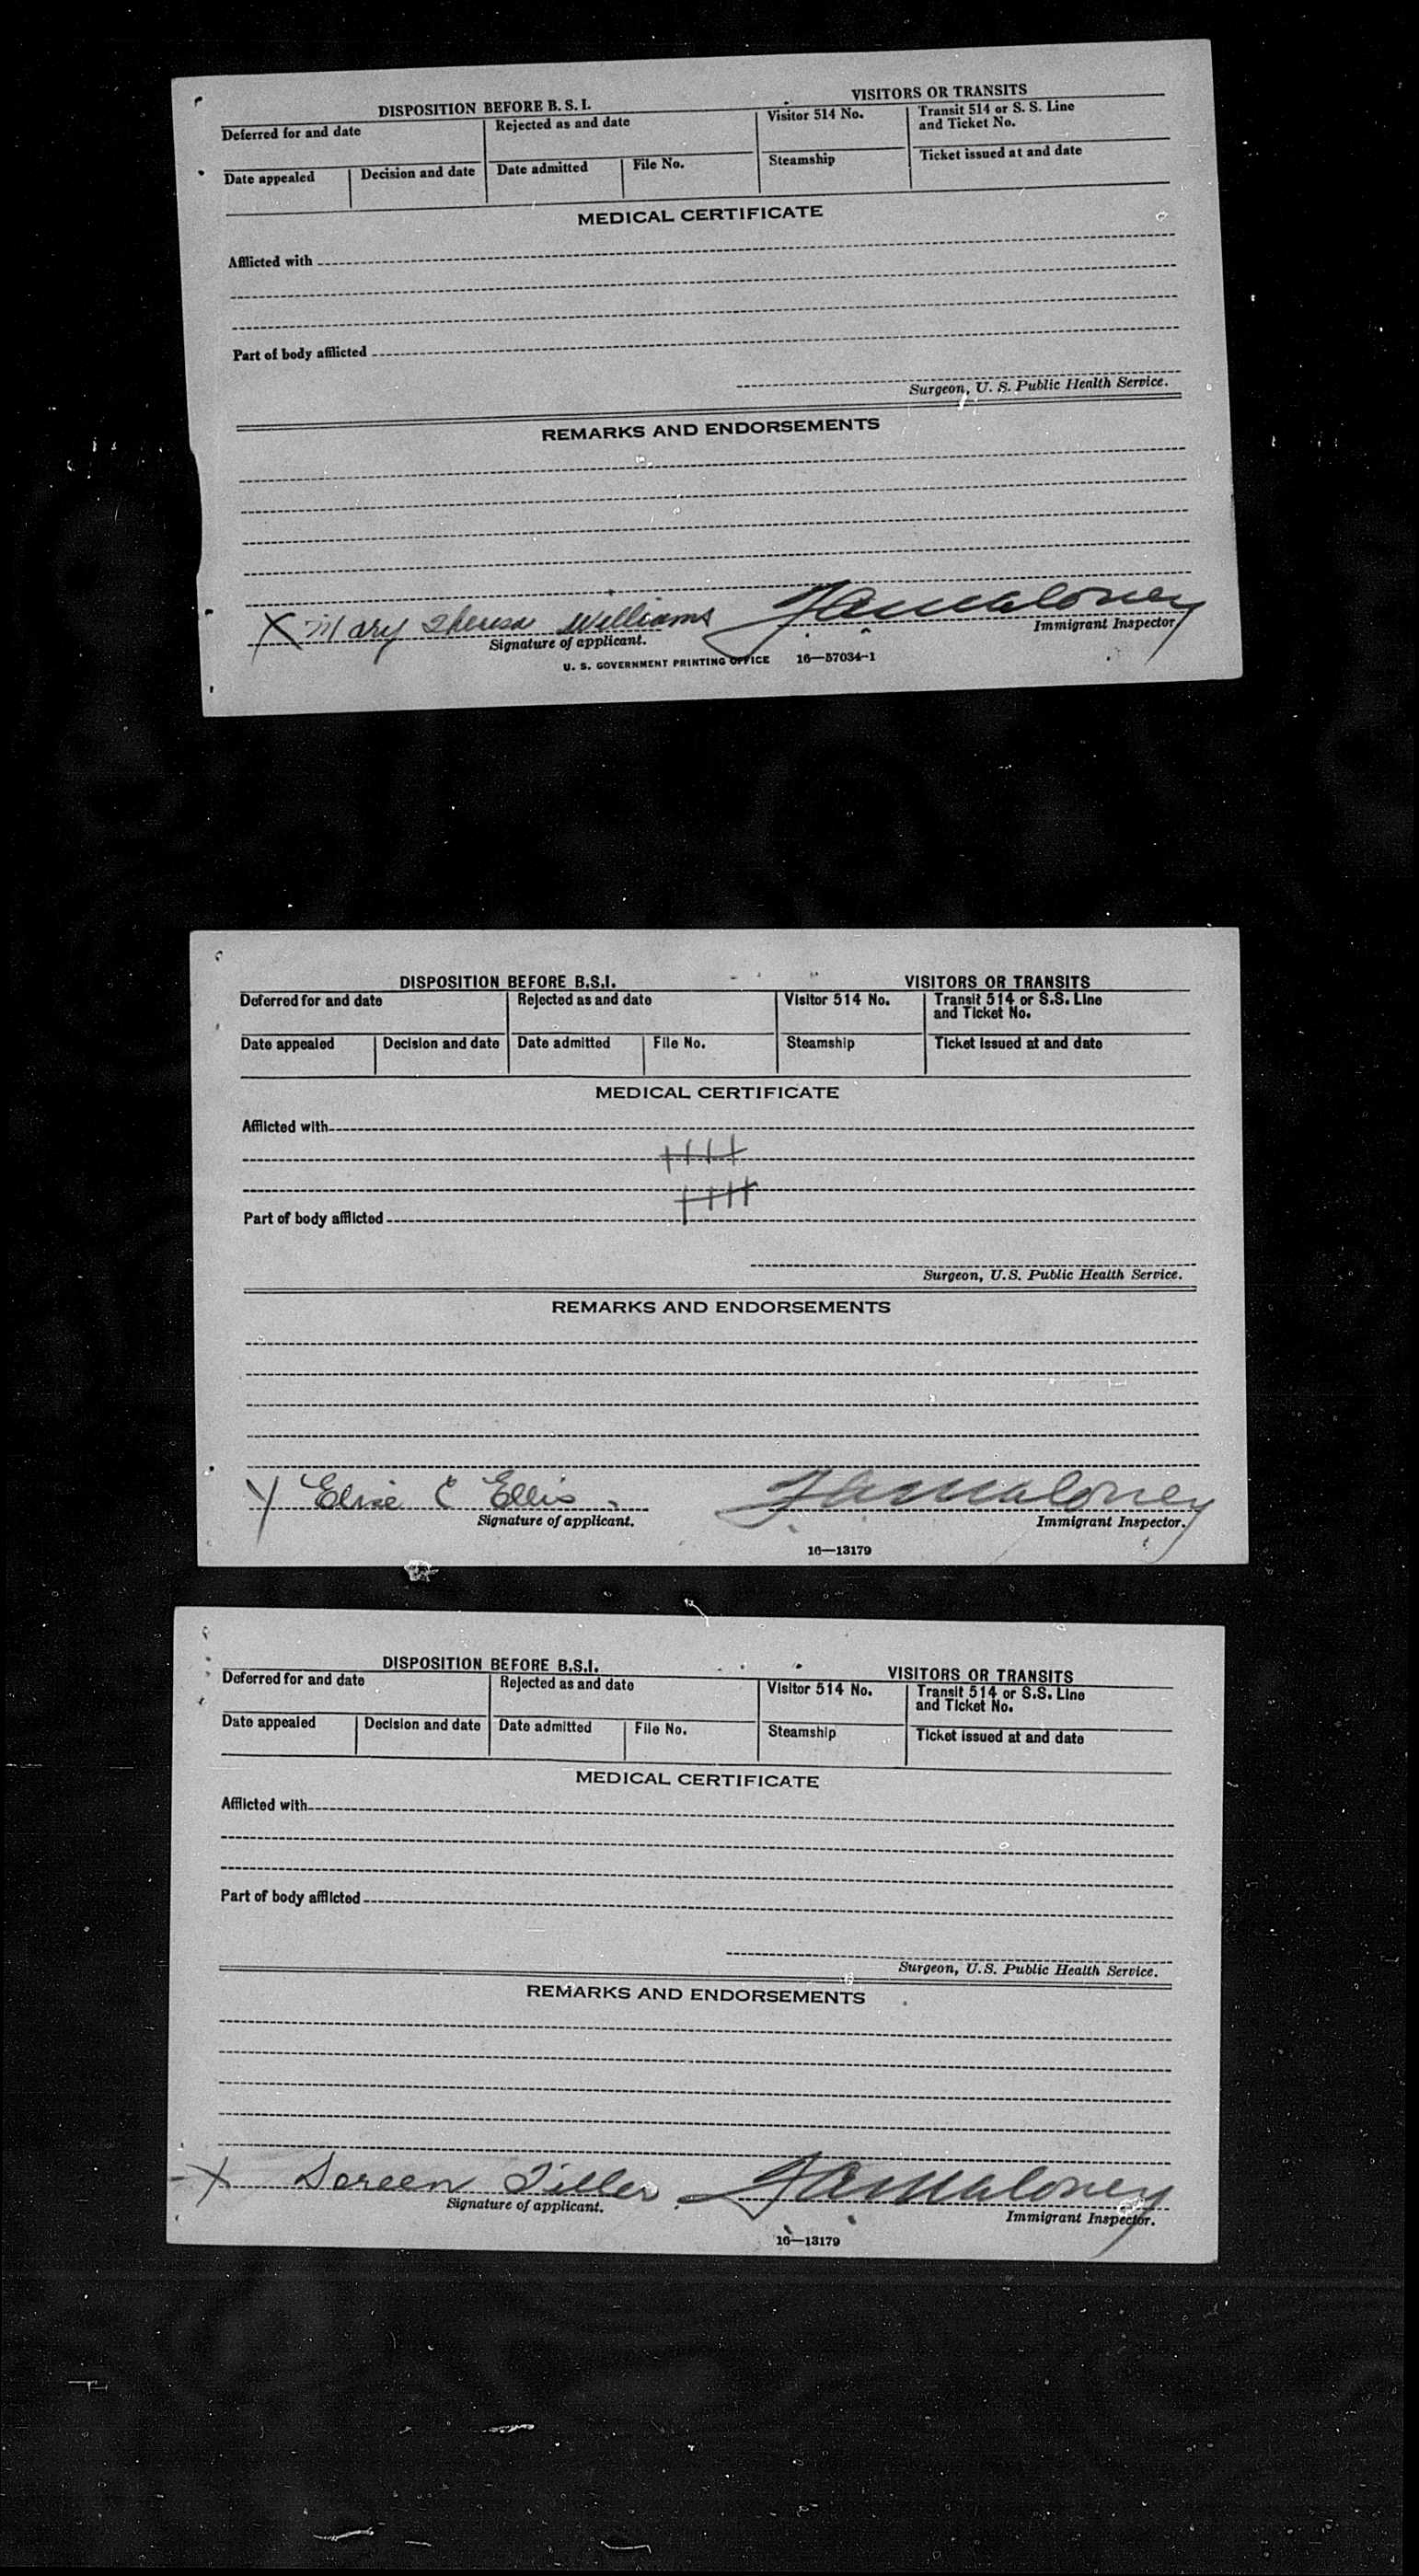 DISPOSITION BEFORE B. S. I. VISITORS OR TRANSITS
Deferred for and date Rejected as and date Visitor 514 No. Transit 514 or S. S. Line and Ticket No.
Date appealed Decision and date Date admitted File No. Steamship Ticket issued at and date
MEDICAL CERTIFICATE
Afflicted with
Part of body afflicted
Surgeon, U. S. Public Health Service.
REMARKS AND ENDORSEMENTS
X Mary Theresa Williams FAMaloney
Signature of applicant. Immigrant Inspector
U. S. GOVERNMENT PRINTING OFFICE 16—57034-1
DISPOSITION BEFORE B.S.I. VISITORS OR TRANSITS
Deferred for and date Rejected as and date Visitor 514 No. Transit 514 or S.S. Line and Ticket No.
Date appealed Decision and date Date admitted File No. Steamship Ticket issued at and date
MEDICAL CERTIFICATE
Afflicted with
Part of body afflicted
Surgeon, U.S. Public Health Service.
REMARKS AND ENDORSEMENTS
X Elsie C Ellis. FAMaloney
Signature of applicant. Immigrant Inspector.
16—13179
DISPOSITION BEFORE B.S.I. VISITORS OR TRANSITS
Deferred for and date Rejected as and date Visitor 514 No. Transit 514 or S.S. Line and Ticket No.
Date appealed Decision and date Date admitted File No. Steamship Ticket issued at and date
MEDICAL CERTIFICATE
Afflicted with
Part of body afflicted
Surgeon, U.S. Public Health Service.
REMARKS AND ENDORSEMENTS
X Doreen Tiller. FAMaloney
Signature of applicant. Immigrant Inspector.
16—13179